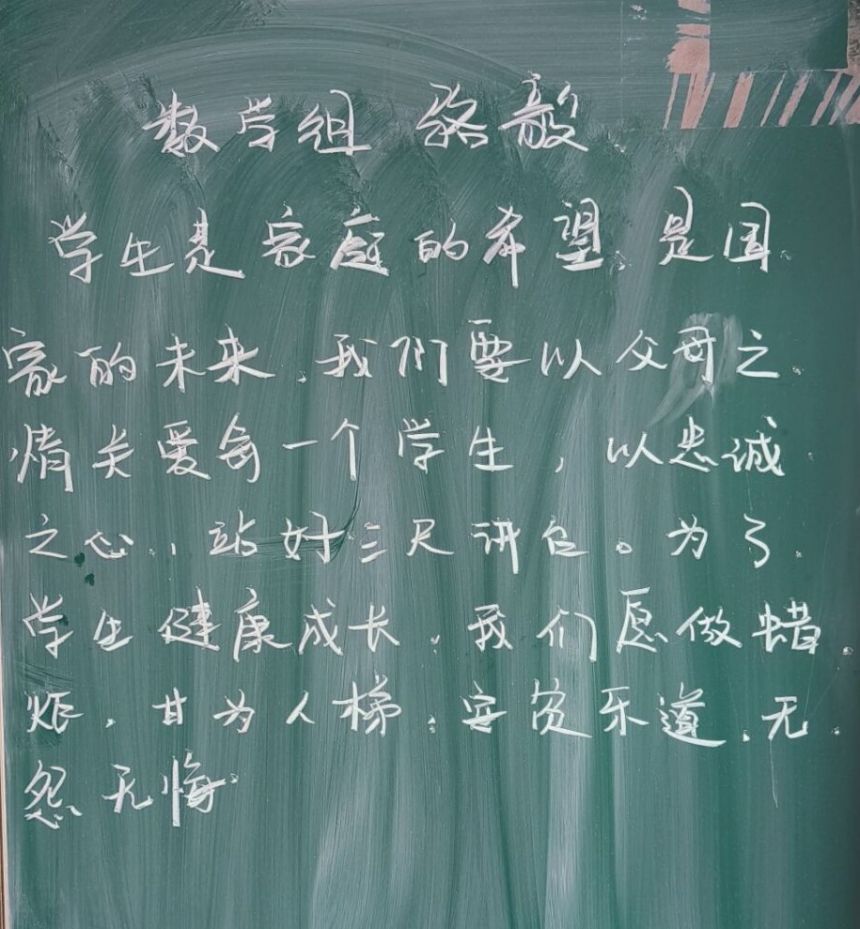 数学组 路毅
学生是家庭的希望、是国
家的未来、我们要以父母之
情关爱每一个学生，以忠诚
之心，站好三尺讲台。为了
学生健康成长，我们愿做蜡
炬，甘为人梯，安贫乐道、无
怨无悔